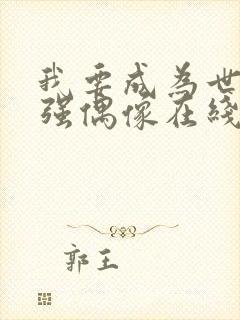 我要成为世
强偶像在线
郭王